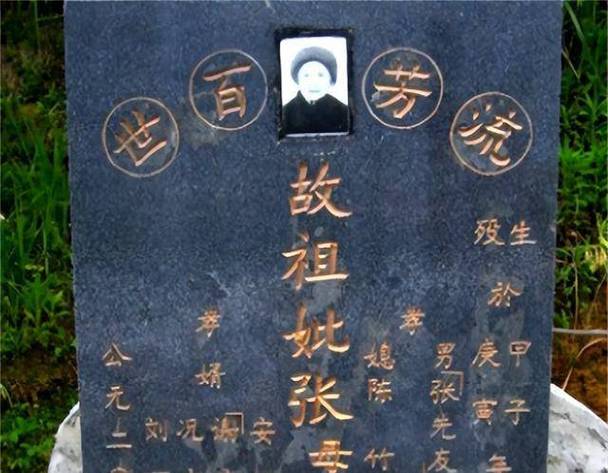 流芳百世
生
殁
於
甲子
庚寅年
孝
男张先友
媳陈竹
故祖妣张母
孝婿
安
况
刘
公元二